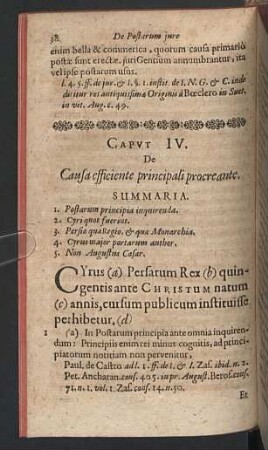 38. De Postarum jure
enim bella & commercia, quorum causa primariò
postæ sunt erectæ, juri Gentium annumbrantur, ita
vel ipse postarum usus.
l. 4. 5. ff. de jur. & l. §. 1. instit. de I. N. G. & C. inde
dicitur res antiquissima Originis à Bœclero in Suet.
in vit. Aug. c. 49.
CAPVT IV.
De
Causa efficiente principali procreante.
SUMMARIA.
1. Postarum principia inquirenda.
2. Cyri quot fuerint.
3. Persia quæ Regio. & quæ Monarchia.
4. Cyrus major portarum author.
5. Non Augustus Cæsar.
CYrus (a) Persarum Rex (b) quin-
gentis ante CHRISTUM natum
(c) annis, cursum publicum instituisse
perhibetur. (d)
1 (a) In Postarum principia ante omnia inquiren-
dum: Principiis enim rei minus cognitis, ad prin-
cipiatorum notitiam non pervenitur,
Paul. de Castro ad l. 1. ff. de t. & l. Zas. ibid. n. 2.
Pet. Ancharan. cons. 405. in pr. August. Beros. cons.
71. n. 1. vol. 1. Zas. cons. 14. n. 50.
Et